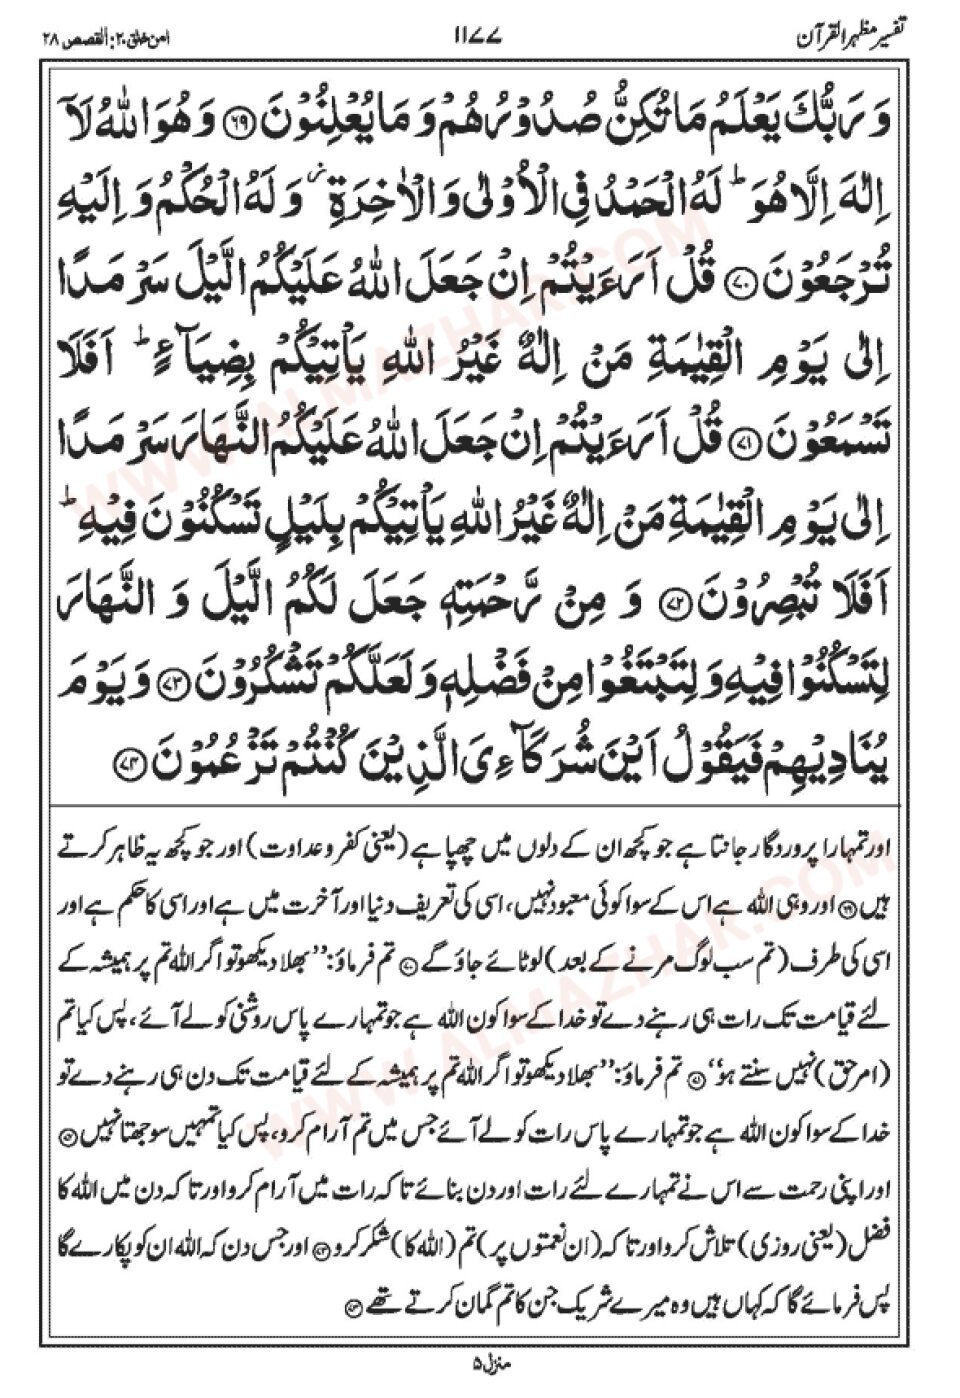 تفسیر مظہر القرآن
۱۱۷۷
امن خلق ۲۰: القصص ۲۸
وَ رَبُّكَ يَعْلَمُ مَا تُكِنُّ صُدُوْرُهُمْ وَ مَا يُعْلِنُوْنَ ۶۹ وَ هُوَ اللّٰهُ لَآ
اِلٰهَ اِلَّا هُوَ ؕ لَهُ الْحَمْدُ فِي الْاُوْلٰى وَ الْاٰخِرَةِ ؗ وَ لَهُ الْحُكْمُ وَ اِلَيْهِ
تُرْجَعُوْنَ ۷۰ قُلْ اَرَءَيْتُمْ اِنْ جَعَلَ اللّٰهُ عَلَيْكُمُ الَّيْلَ سَرْمَدًا
اِلٰى يَوْمِ الْقِيٰمَةِ مَنْ اِلٰهٌ غَيْرُ اللّٰهِ يَاْتِيْكُمْ بِضِيَآءٍ ؕ اَفَلَا
تَسْمَعُوْنَ ۷۱ قُلْ اَرَءَيْتُمْ اِنْ جَعَلَ اللّٰهُ عَلَيْكُمُ النَّهَارَ سَرْمَدًا
اِلٰى يَوْمِ الْقِيٰمَةِ مَنْ اِلٰهٌ غَيْرُ اللّٰهِ يَاْتِيْكُمْ بِلَيْلٍ تَسْكُنُوْنَ فِيْهِ ؕ
اَفَلَا تُبْصِرُوْنَ ۷۲ وَ مِنْ رَّحْمَتِهٖ جَعَلَ لَكُمُ الَّيْلَ وَ النَّهَارَ
لِتَسْكُنُوْا فِيْهِ وَ لِتَبْتَغُوْا مِنْ فَضْلِهٖ وَ لَعَلَّكُمْ تَشْكُرُوْنَ ۷۳ وَ يَوْمَ
يُنَادِيْهِمْ فَيَقُوْلُ اَيْنَ شُرَكَآءِيَ الَّذِيْنَ كُنْتُمْ تَزْعُمُوْنَ ۷۴
اور تمہارا پروردگار جانتا ہے جو کچھ ان کے دلوں میں چھپا ہے (یعنی کفر و عداوت) اور جو کچھ یہ ظاہر کرتے
ہیں ۶۹ اور وہی اللہ ہے اس کے سوا کوئی معبود نہیں، اسی کی تعریف دنیا اور آخرت میں ہے اور اسی کا حکم ہے اور
اسی کی طرف (تم سب لوگ مرنے کے بعد) لوٹائے جاؤ گے ۷۰ تم فرماؤ: ’’بھلا دیکھو تو اگر اللہ تم پر ہمیشہ کے
لئے قیامت تک رات ہی رہنے دے تو خدا کے سوا کون اللہ ہے جو تمہارے پاس روشنی کو لے آئے، پس کیا تم
(امر حق) نہیں سنتے ہو‘‘ ۷۱ تم فرماؤ: ’’بھلا دیکھو تو اگر اللہ تم پر ہمیشہ کے لئے قیامت تک دن ہی رہنے دے تو
خدا کے سوا کون اللہ ہے جو تمہارے پاس رات کو لے آئے جس میں تم آرام کرو، پس کیا تمہیں سوجھتا نہیں ۷۲
اور اپنی رحمت سے اس نے تمہارے لئے رات اور دن بنائے تا کہ رات میں آرام کرو اور تا کہ دن میں اللہ کا
فضل (یعنی روزی) تلاش کرو اور تا کہ (ان نعمتوں پر) تم (اللہ کا) شکر کرو ۷۳ اور جس دن کہ اللہ ان کو پکارے گا
پس فرمائے گا کہ کہاں ہیں وہ میرے شریک جن کا تم گمان کرتے تھے ۷۴
منزل ۵
WWW.ALMAZHAR.COM
WWW.ALMAZHAR.COM